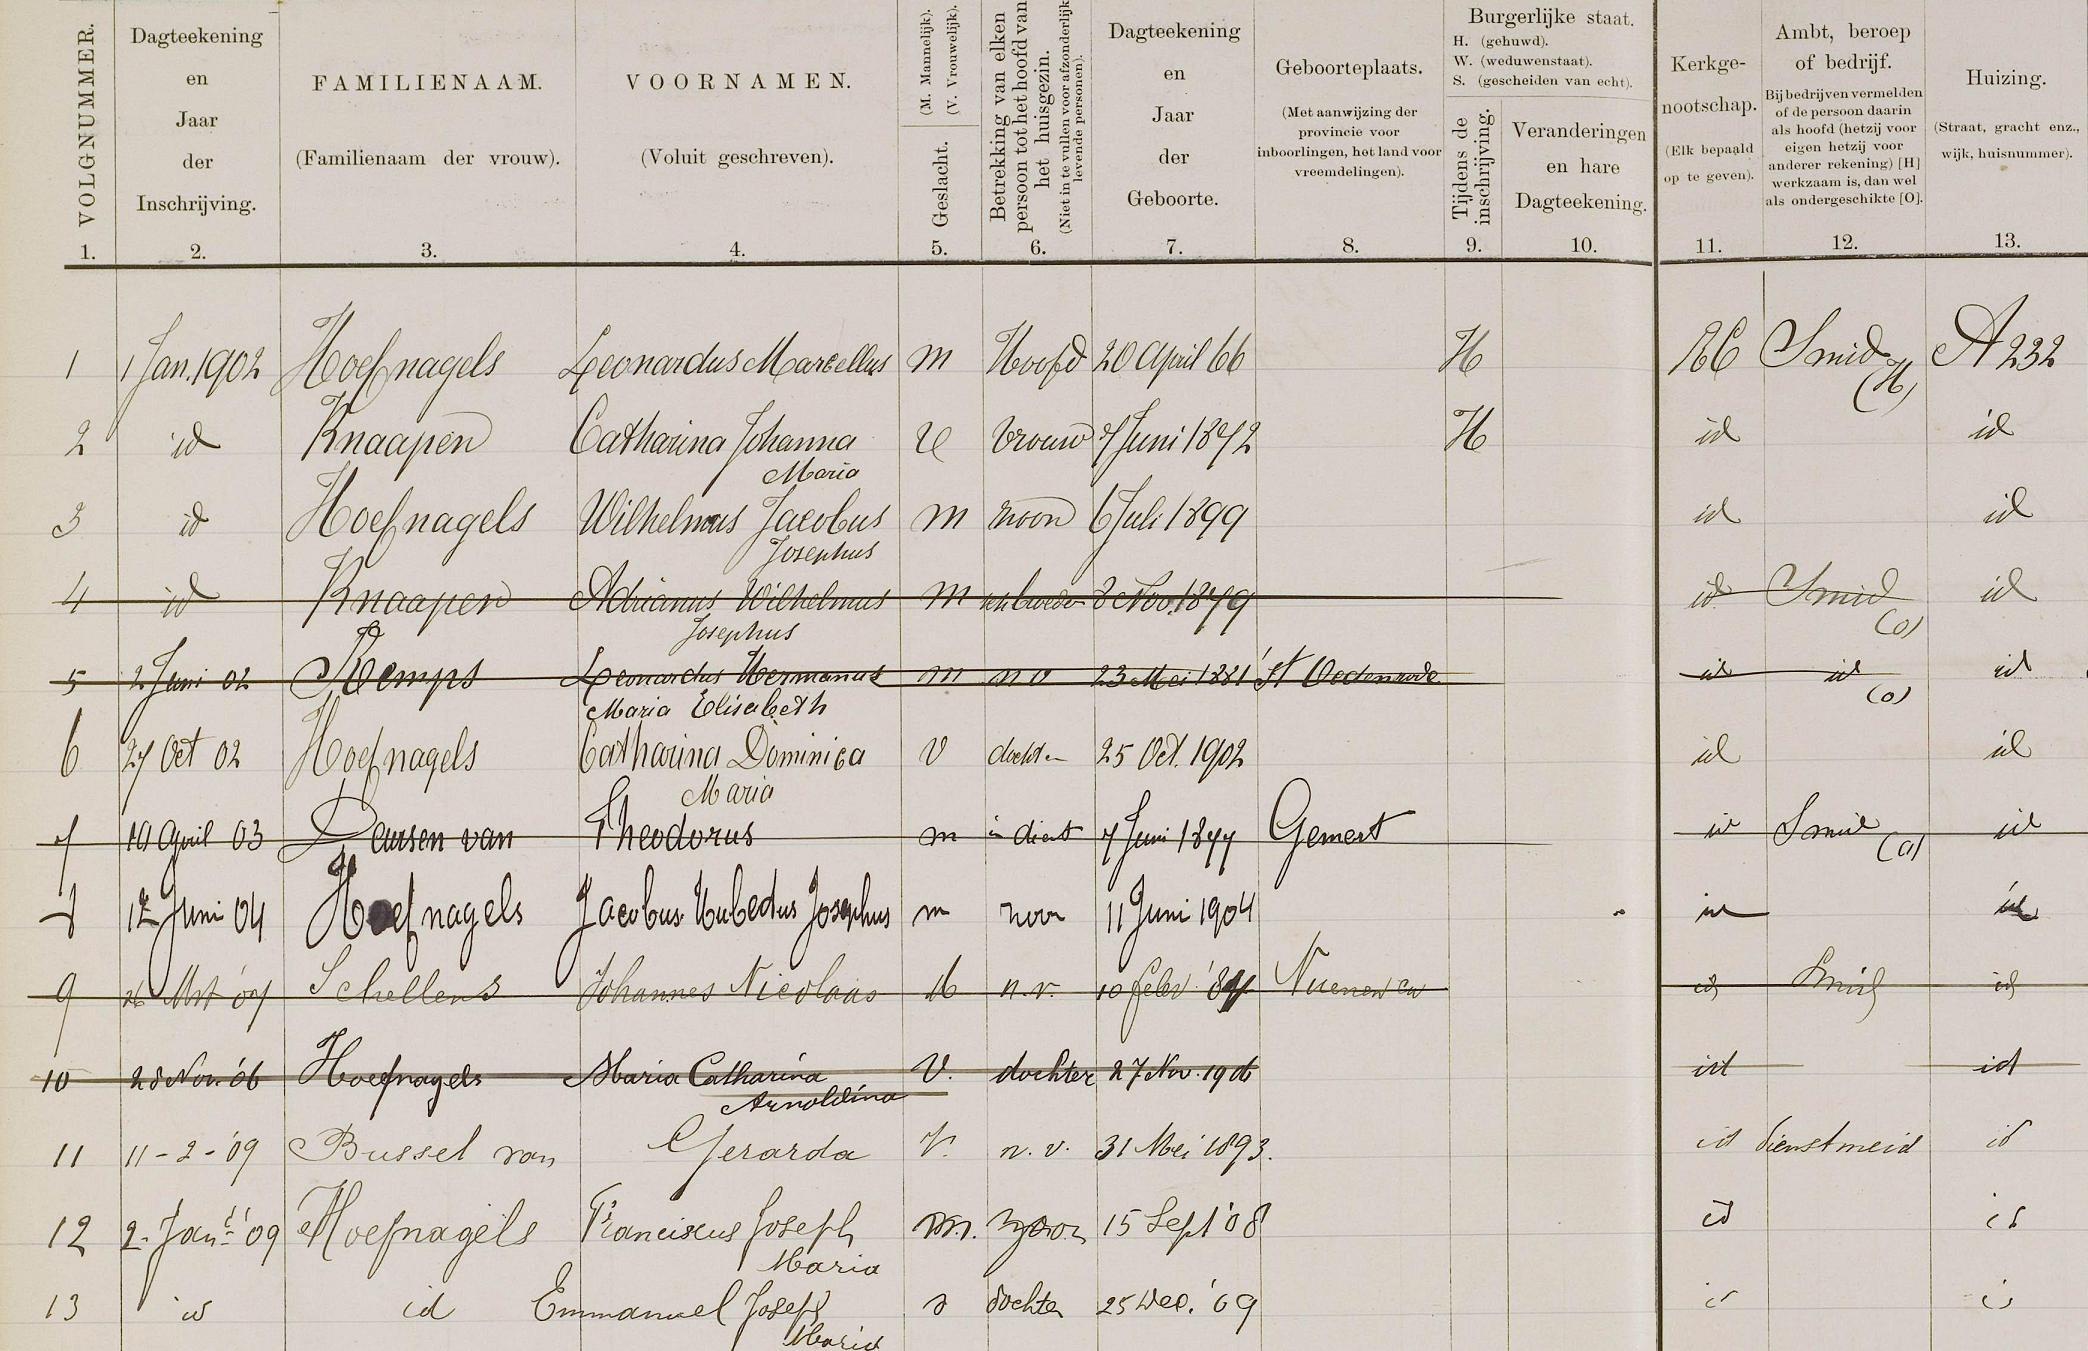 VOLGNUMMER.
1.
Dagteekening
en
Jaar
der
Inschrijving.
2.
FAMILIENAAM.
(Familienaam der vrouw).
3.
VOORNAMEN.
(Voluit geschreven).
4.
Geslacht.
(M. Mannelijk).
(V. Vrouwelijk).
5.
Betrekking van elken
persoon tot het hoofd van
het huisgezin.
(Niet in te vullen voor afzonderlijk
levende personen).
6.
Dagteekening
en
Jaar
der
Geboorte.
7.
Geboorteplaats.
(Met aanwijzing der
provincie voor
inboorlingen, het land voor
vreemdelingen).
8.
Burgerlijke staat.
H. (gehuwd).
W. (weduwenstaat).
S. (gescheiden van echt).
Tijdens de
inschrijving.
9.
Veranderingen
en hare
Dagteekening.
10.
Kerkge-
nootschap.
(Elk bepaald
op te geven).
11.
Ambt, beroep
of bedrijf.
Bij bedrijven vermelden
of de persoon daarin
als hoofd (hetzij voor
eigen hetzij voor
anderer rekening) [H]
werkzaam is, dan wel
als ondergeschikte [O].
12.
Huizing.
(Straat, gracht enz.,
wijk, huisnummer).
13.
1 1 Jan. 1902 Hoefnagels Leonardus Marcellus m Hoofd 20 April 66 H RC Smid (H) A 232
2 id Knaapen Catharina Johanna V vrouw 7 Juni 1872 H id id
Maria
3 id Hoefnagels Wilhelmus Jacobus m zoon 6 Juli 1899 id id
Josephus
4 id Knaapen Adrianus Wilhelmus m 8 Nov. 1879 id Smid (o) id
Josephus
5 2 Juni 02 Kemps Leonardus Hermanus m n v 23 Mei 1881 St Oedenrode id id (o) id
Maria Elisabeth
6 27 Oct 02 Hoefnagels Catharina Dominica V dochter 25 Oct. 1902 id id
Maria
7 April 03 Deursen van Theodorus m in dienst 7 Juni 1877 Gemert id Smid (o) id
8 12 Juni 04 Hoefnagels Jacobus Hubertus Josephus m zoon 11 Juni 1904 id id
9 26 Mrt 07 Schellens Johannes Nicolaas M n.v. 10 Febr Nuenen ca id Smid id
10 28 Nov. 06 Hoefnagels Maria Catharina V. dochter 27 Nov. 1906 id id
Arnoldina
11 11-2-'09 Bussel van Gerarda V. n.v. 31 Mei 1893. id dienstmeid id
12 2 Jan. '09 Hoefnagels Franciscus Joseph m. zoon 15 Sept '08 id id
Maria
13 id id Emmanuel Joseph dochter 25 Dec. '09 id id
Maria